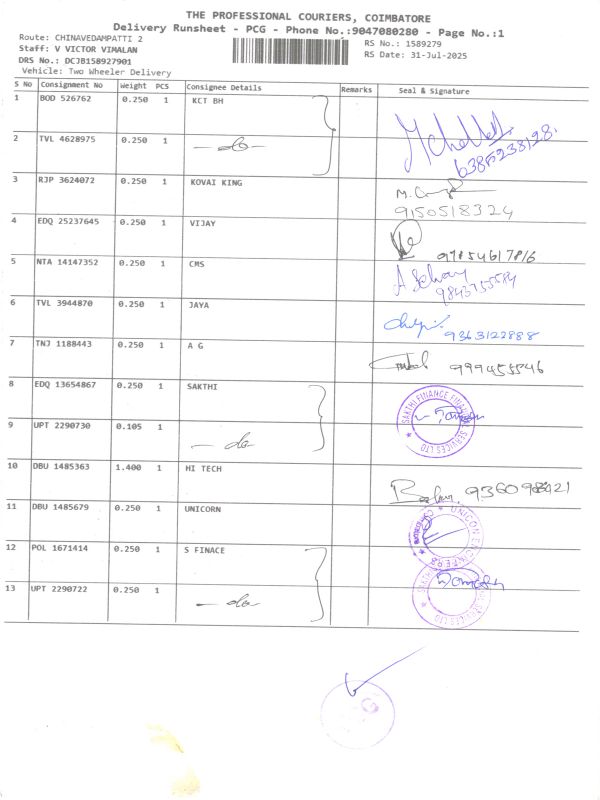 THE PROFESSIONAL COURIERS, COIMBATORE
Delivery Runsheet - PCG - Phone No.:9047080280 - Page No.:1
Route: CHINAVEDAMPATTI 2
RS No.: 1589279
Staff: V VICTOR VIMALAN
RS Date: 31-Jul-2025
DRS No.: DCJB158927901
Vehicle: Two Wheeler Delivery
S No Consignment No Weight PCS Consignee Details Remarks Seal & Signature
1 BOD 526762 0.250 1 KCT BH
6385238128
2 TVL 4628975 0.250 1 - do -
3 RJP 3624072 0.250 1 KOVAI KING
9150518324
4 EDQ 25237645 0.250 1 VIJAY
9785461786
5 NTA 14147352 0.250 1 CMS
9843755584
6 TVL 3944870 0.250 1 JAYA
9363122888
7 TNJ 1188443 0.250 1 A G
999455546
8 EDQ 13654867 0.250 1 SAKTHI
SAKTHI FINANCE FINANCIAL SERVICES LTD
9 UPT 2290730 0.105 1 - do -
10 DBU 1485363 1.400 1 HI TECH
11 DBU 1485679 0.250 1 UNICORN
12 POL 1671414 0.250 1 S FINACE
13 UPT 2290722 0.250 1 - do -